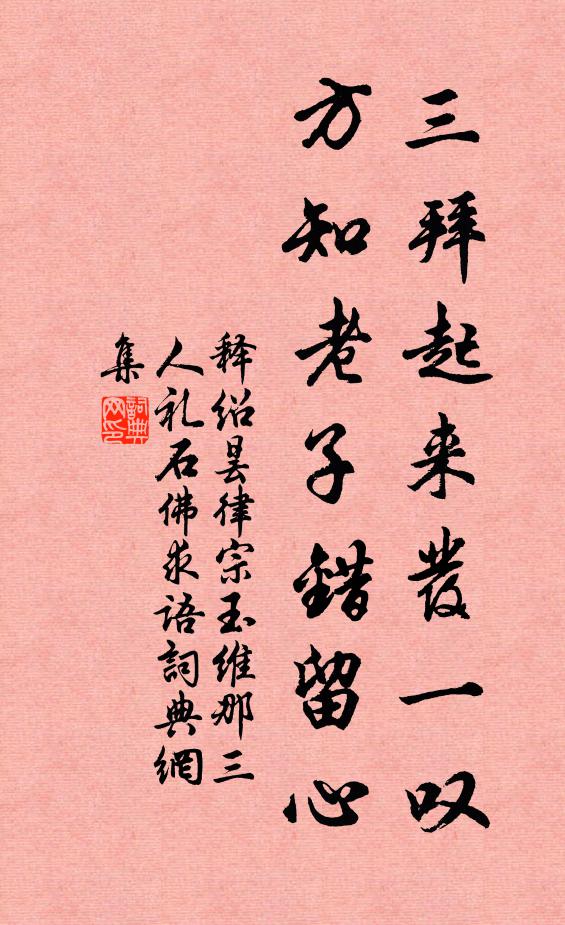 三拜起来發一叹
方知老子錯留心
释绍昙律宗玉维那三
人礼石佛求语詞典網
集
詞典网印